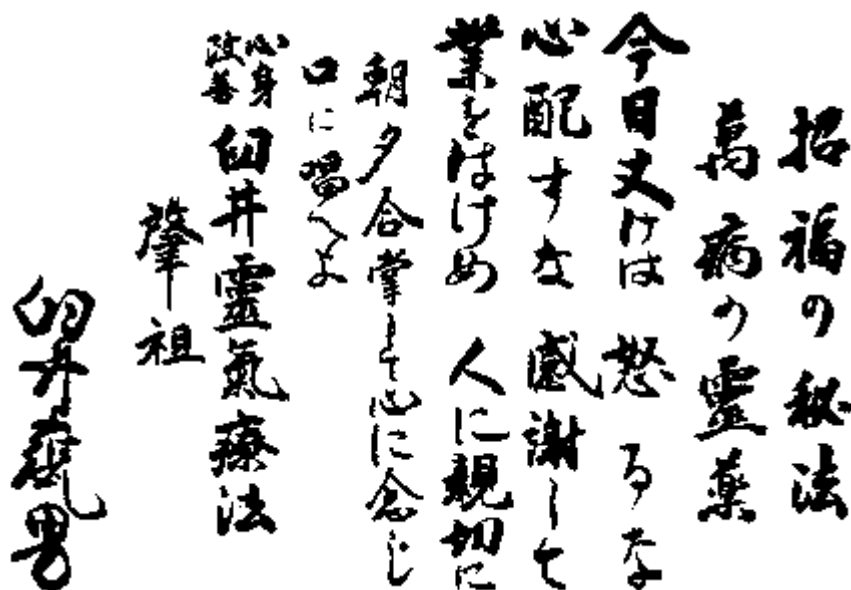 招福の秘法
萬病の靈薬
今日丈けは 怒るな
心配すな 感謝して
業をはけめ 人に親切に
朝夕合掌して心に念じ
口に唱へよ
心身
改善
臼井靈氣療法
肇祖
臼井甕男